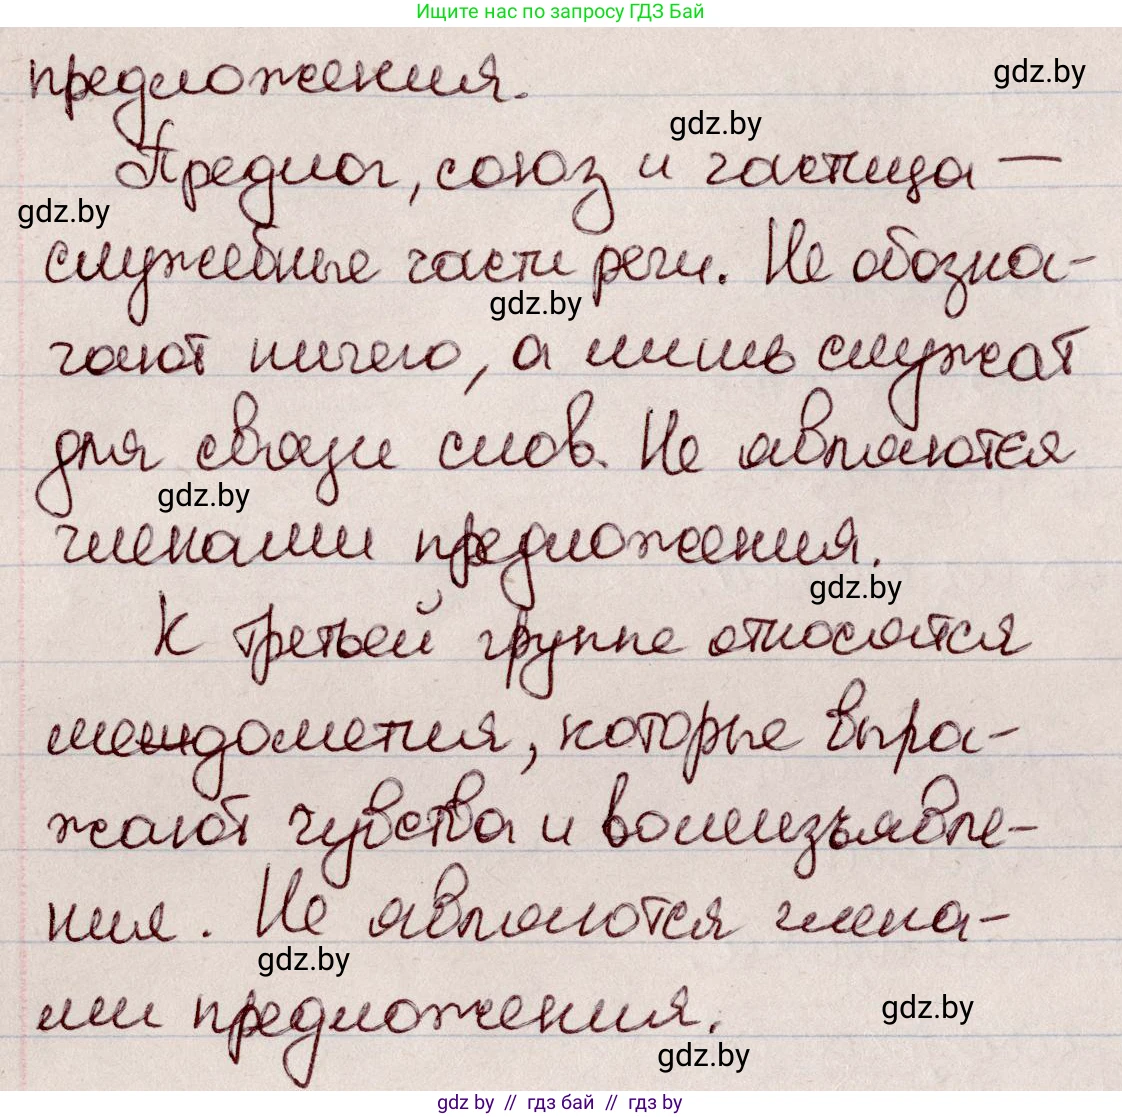 Ищите нас по запросу ГДЗ Бай
предложения.
gdz.by
gdz.by
Предлог, союз и частица —
gdz.by
служебные части речи. Не обозна-
gdz.by
чают ничего, а лишь служат
для связи слов. Не являются
gdz.by
членами предложения.
gdz.by
К третьей группе относятся
междометия, которые выра-
жают чувства и волеизъявле-
ния. Не являются члена-
gdz.by
ми предложения.
gdz.by
gdz.by
gdz by // гдз бай // гдз by